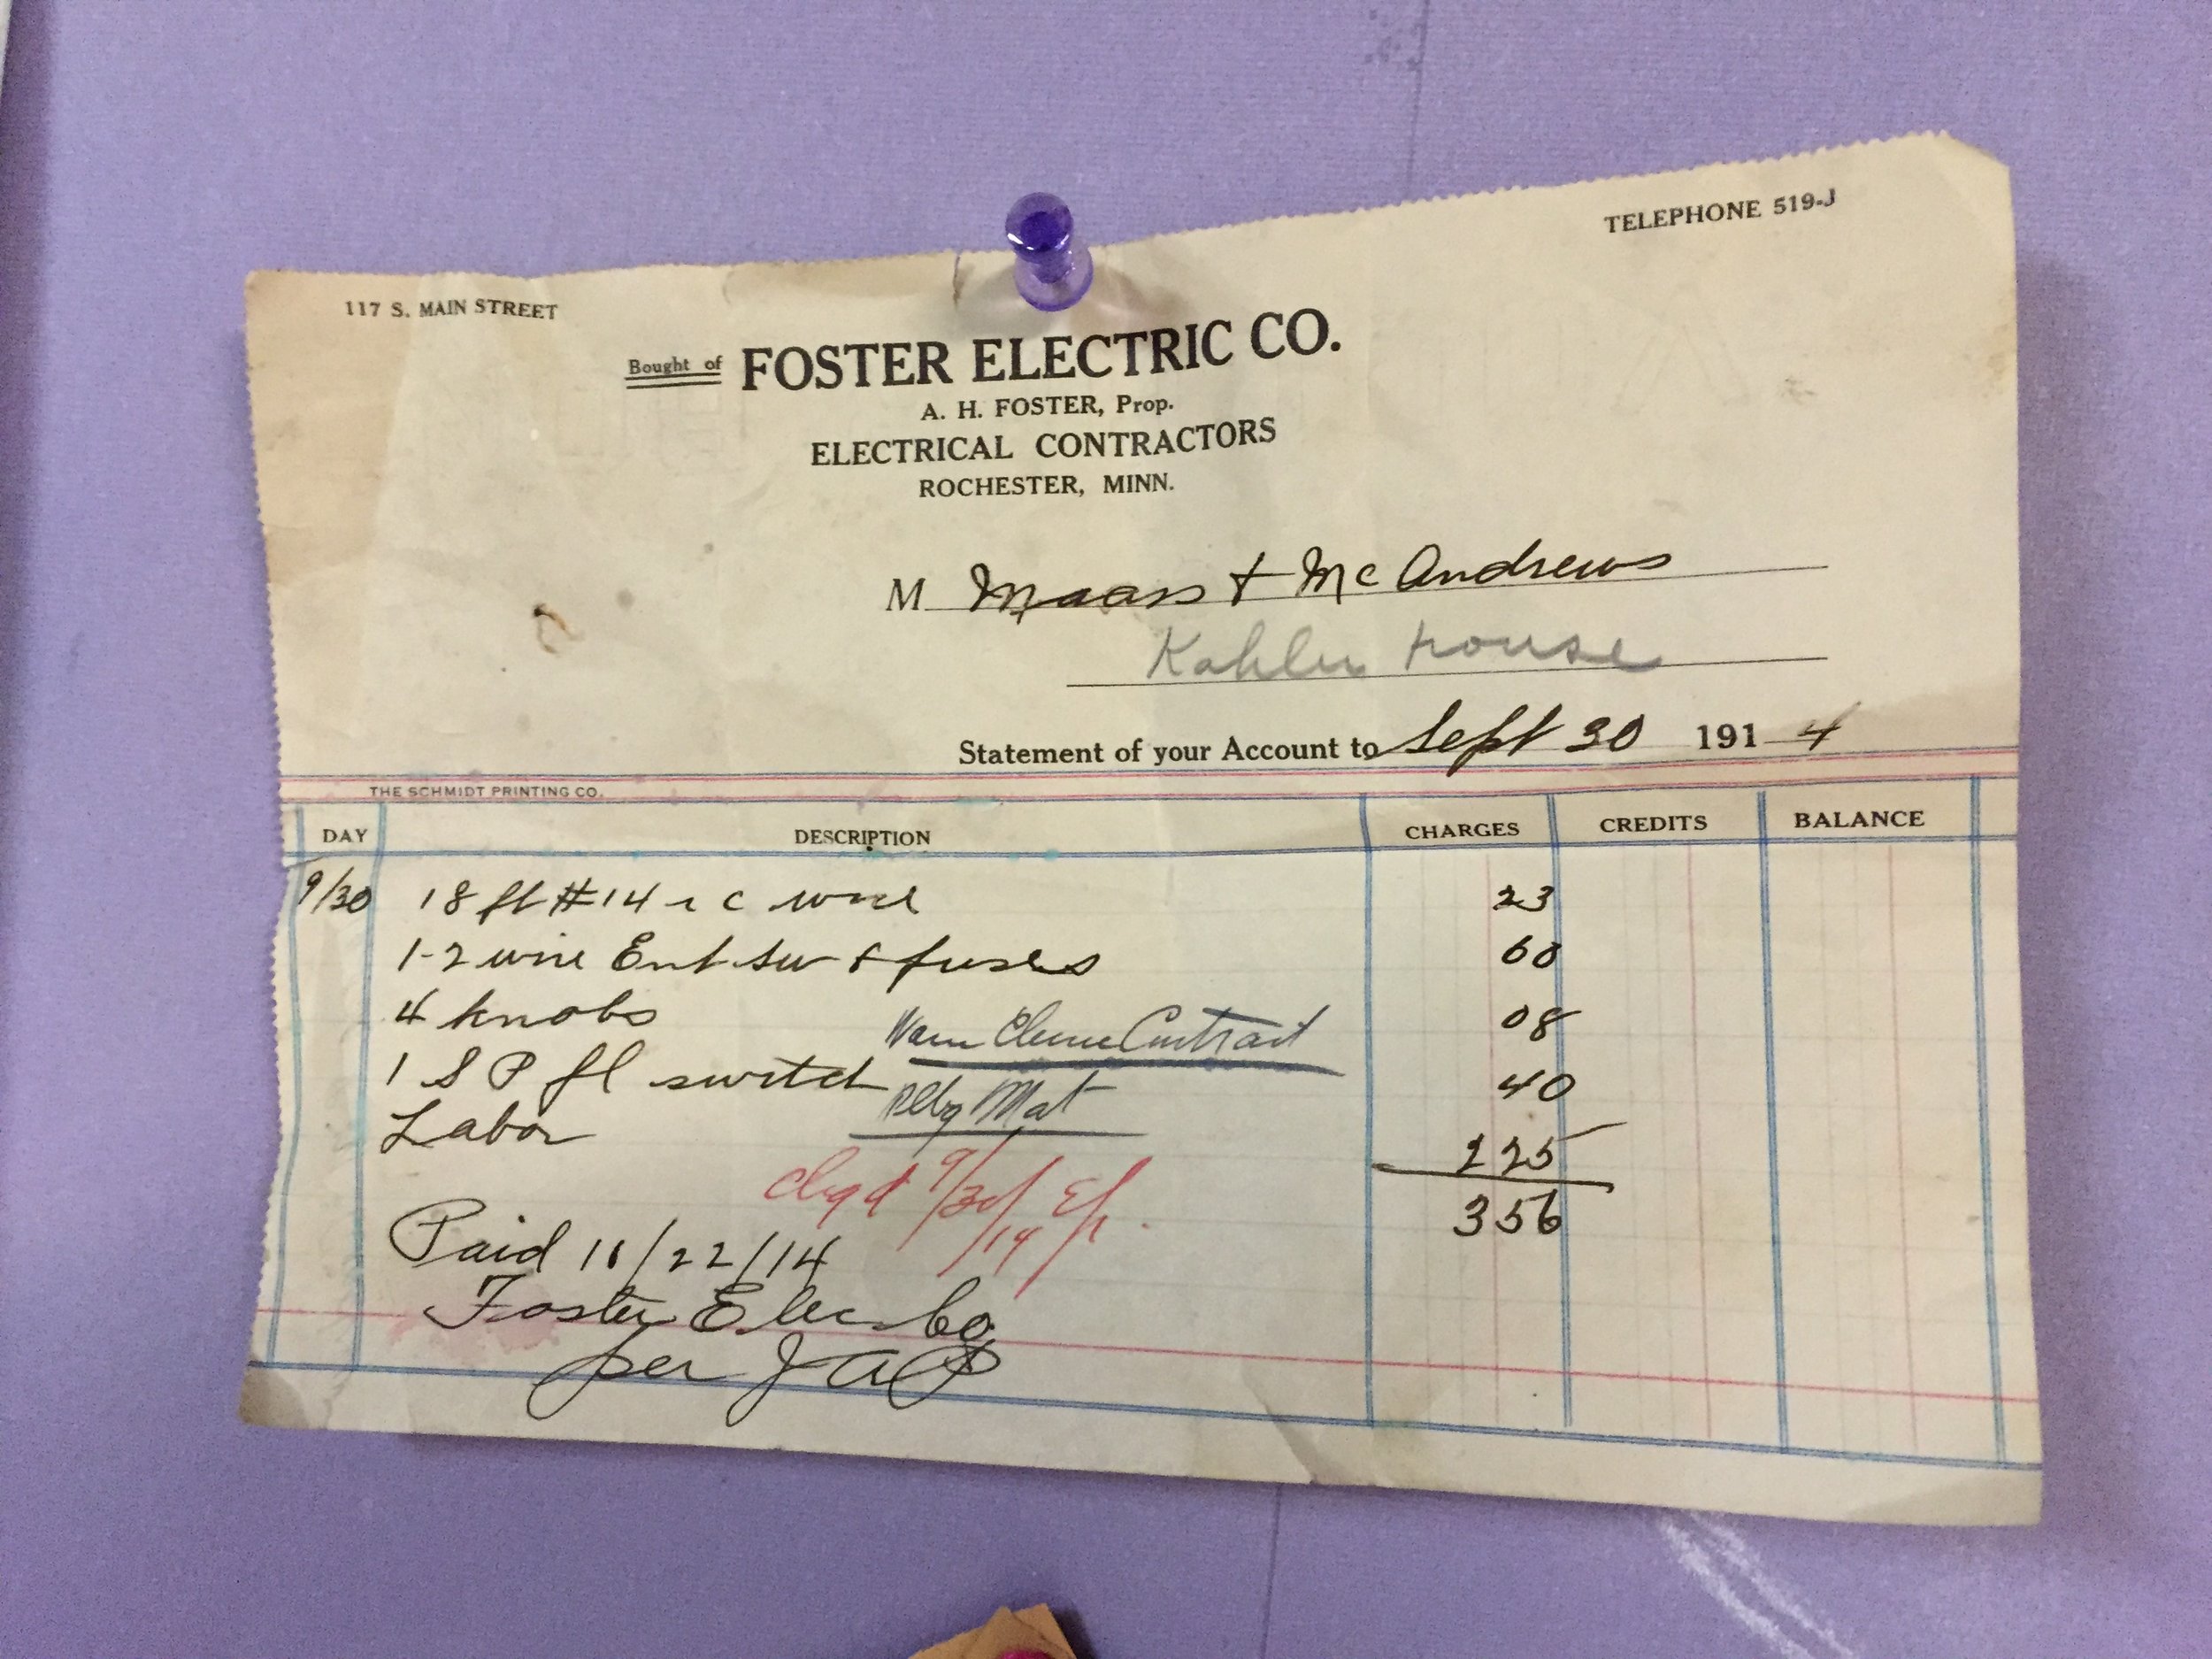 TELEPHONE 519-J
117 S. MAIN STREET
Bought of FOSTER ELECTRIC CO.
A. H. FOSTER, Prop.
ELECTRICAL CONTRACTORS
ROCHESTER, MINN.
M Maass & McAndrews
Kahler House
Statement of your Account to Sept 30 1914
THE SCHMIDT PRINTING CO.
DAY DESCRIPTION CHARGES CREDITS BALANCE
9/30 18 ft #14 r c wire 23
1-2 wire Ent. sw & fuses 60
4 knobs 08
Contract
1 S P fl switch 40
Bldg Mat
Labor 225
356
chgd 9/30/14
Paid 11/22/14
Foster Elec Co
per J A P